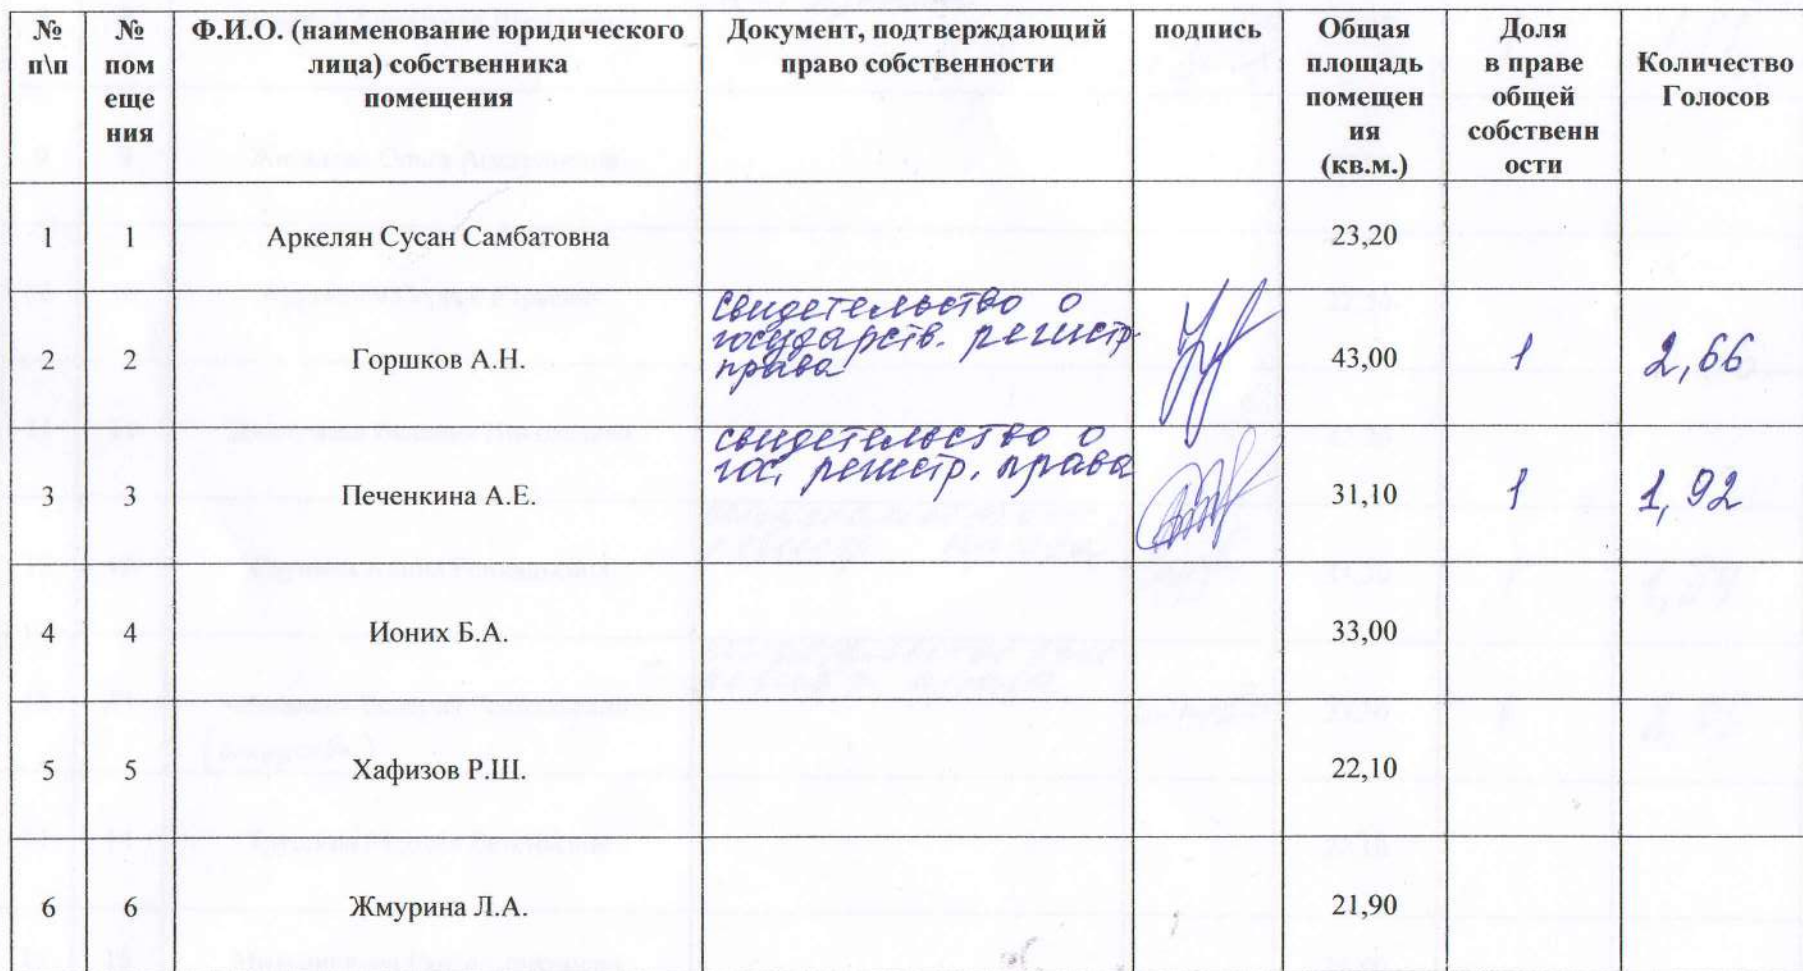 № п\п
№ пом еще ния
Ф.И.О. (наименование юридического лица) собственника помещения
Документ, подтверждающий право собственности
подпись
Общая площадь помещен ия (кв.м.)
Доля в праве общей собственн ости
Количество Голосов
1 1 Аркелян Сусан Самбатовна 23,20
свидетельство о
государств. регистр.
права
2 2 Горшков А.Н. 43,00 1 2,66
свидетельство о
гос. регистр. права
3 3 Печенкина А.Е. 31,10 1 1,92
4 4 Ионих Б.А. 33,00
5 5 Хафизов Р.Ш. 22,10
6 6 Жмурина Л.А. 21,90